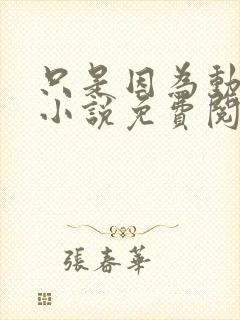 只是因為動
小說免費閱
張春華